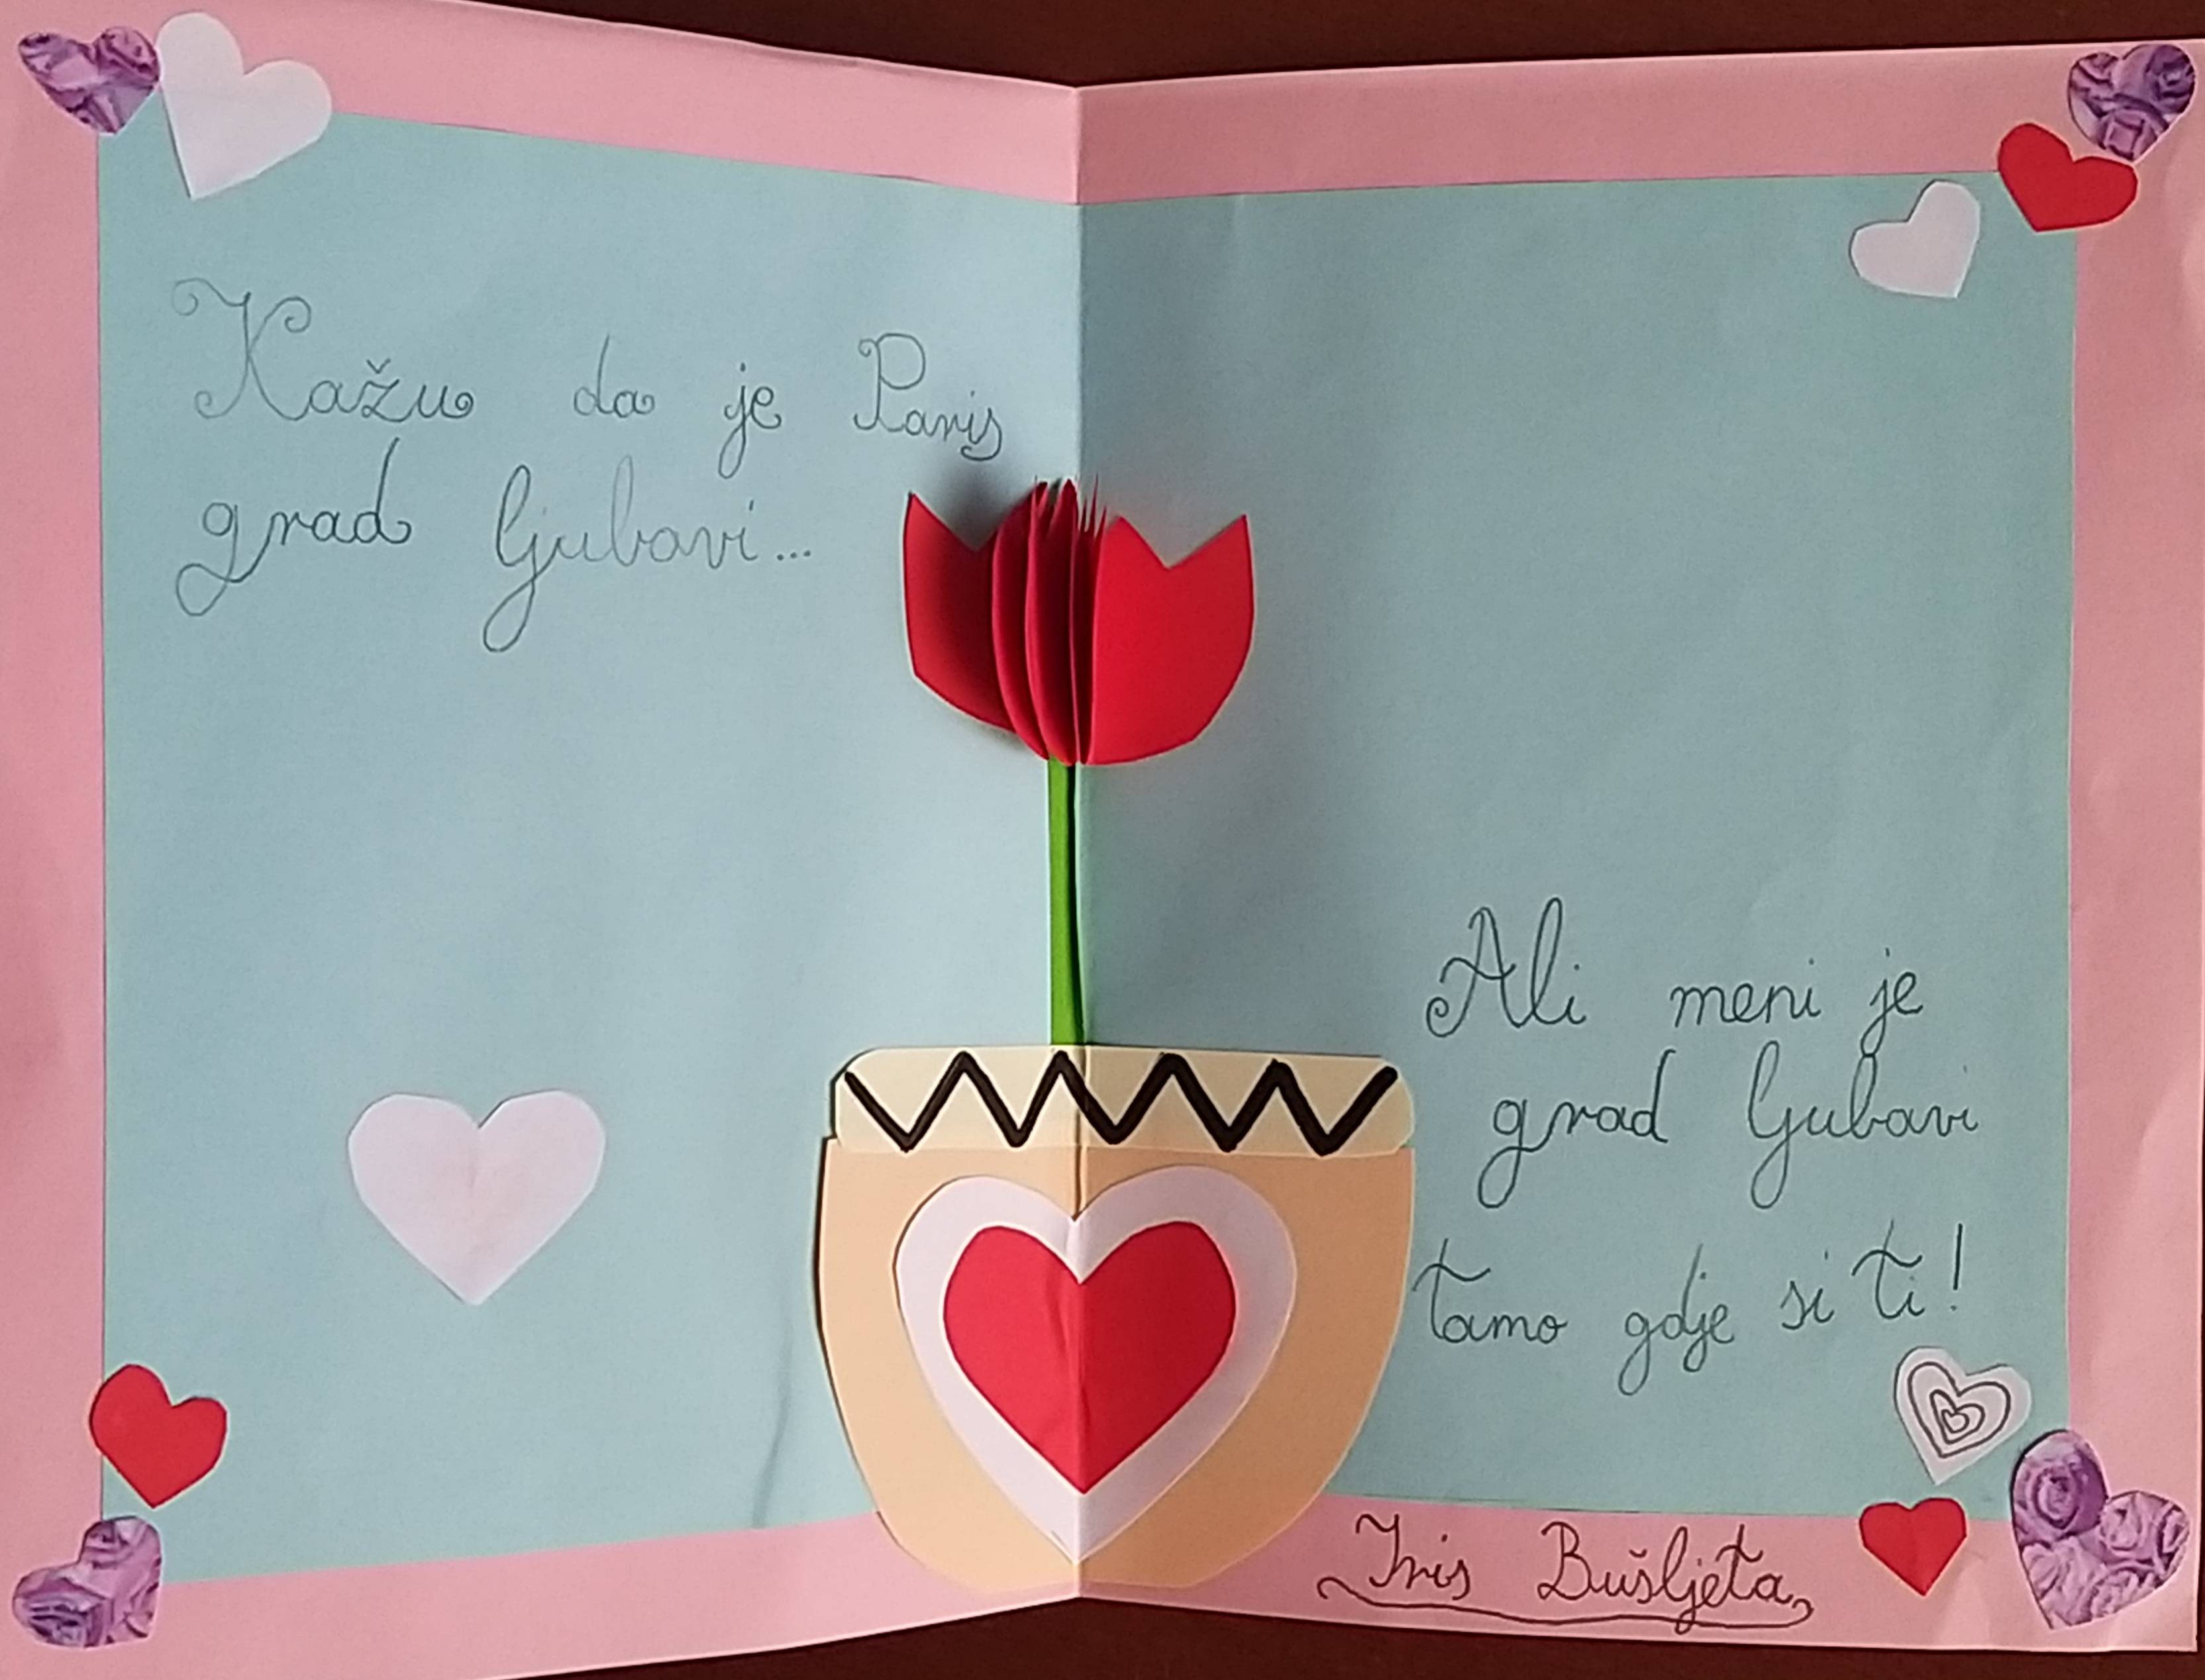 Kažu da je Paris
grad ljubavi...
Ali meni je
grad ljubavi
tamo gdje si ti!
Iris Bušljeta